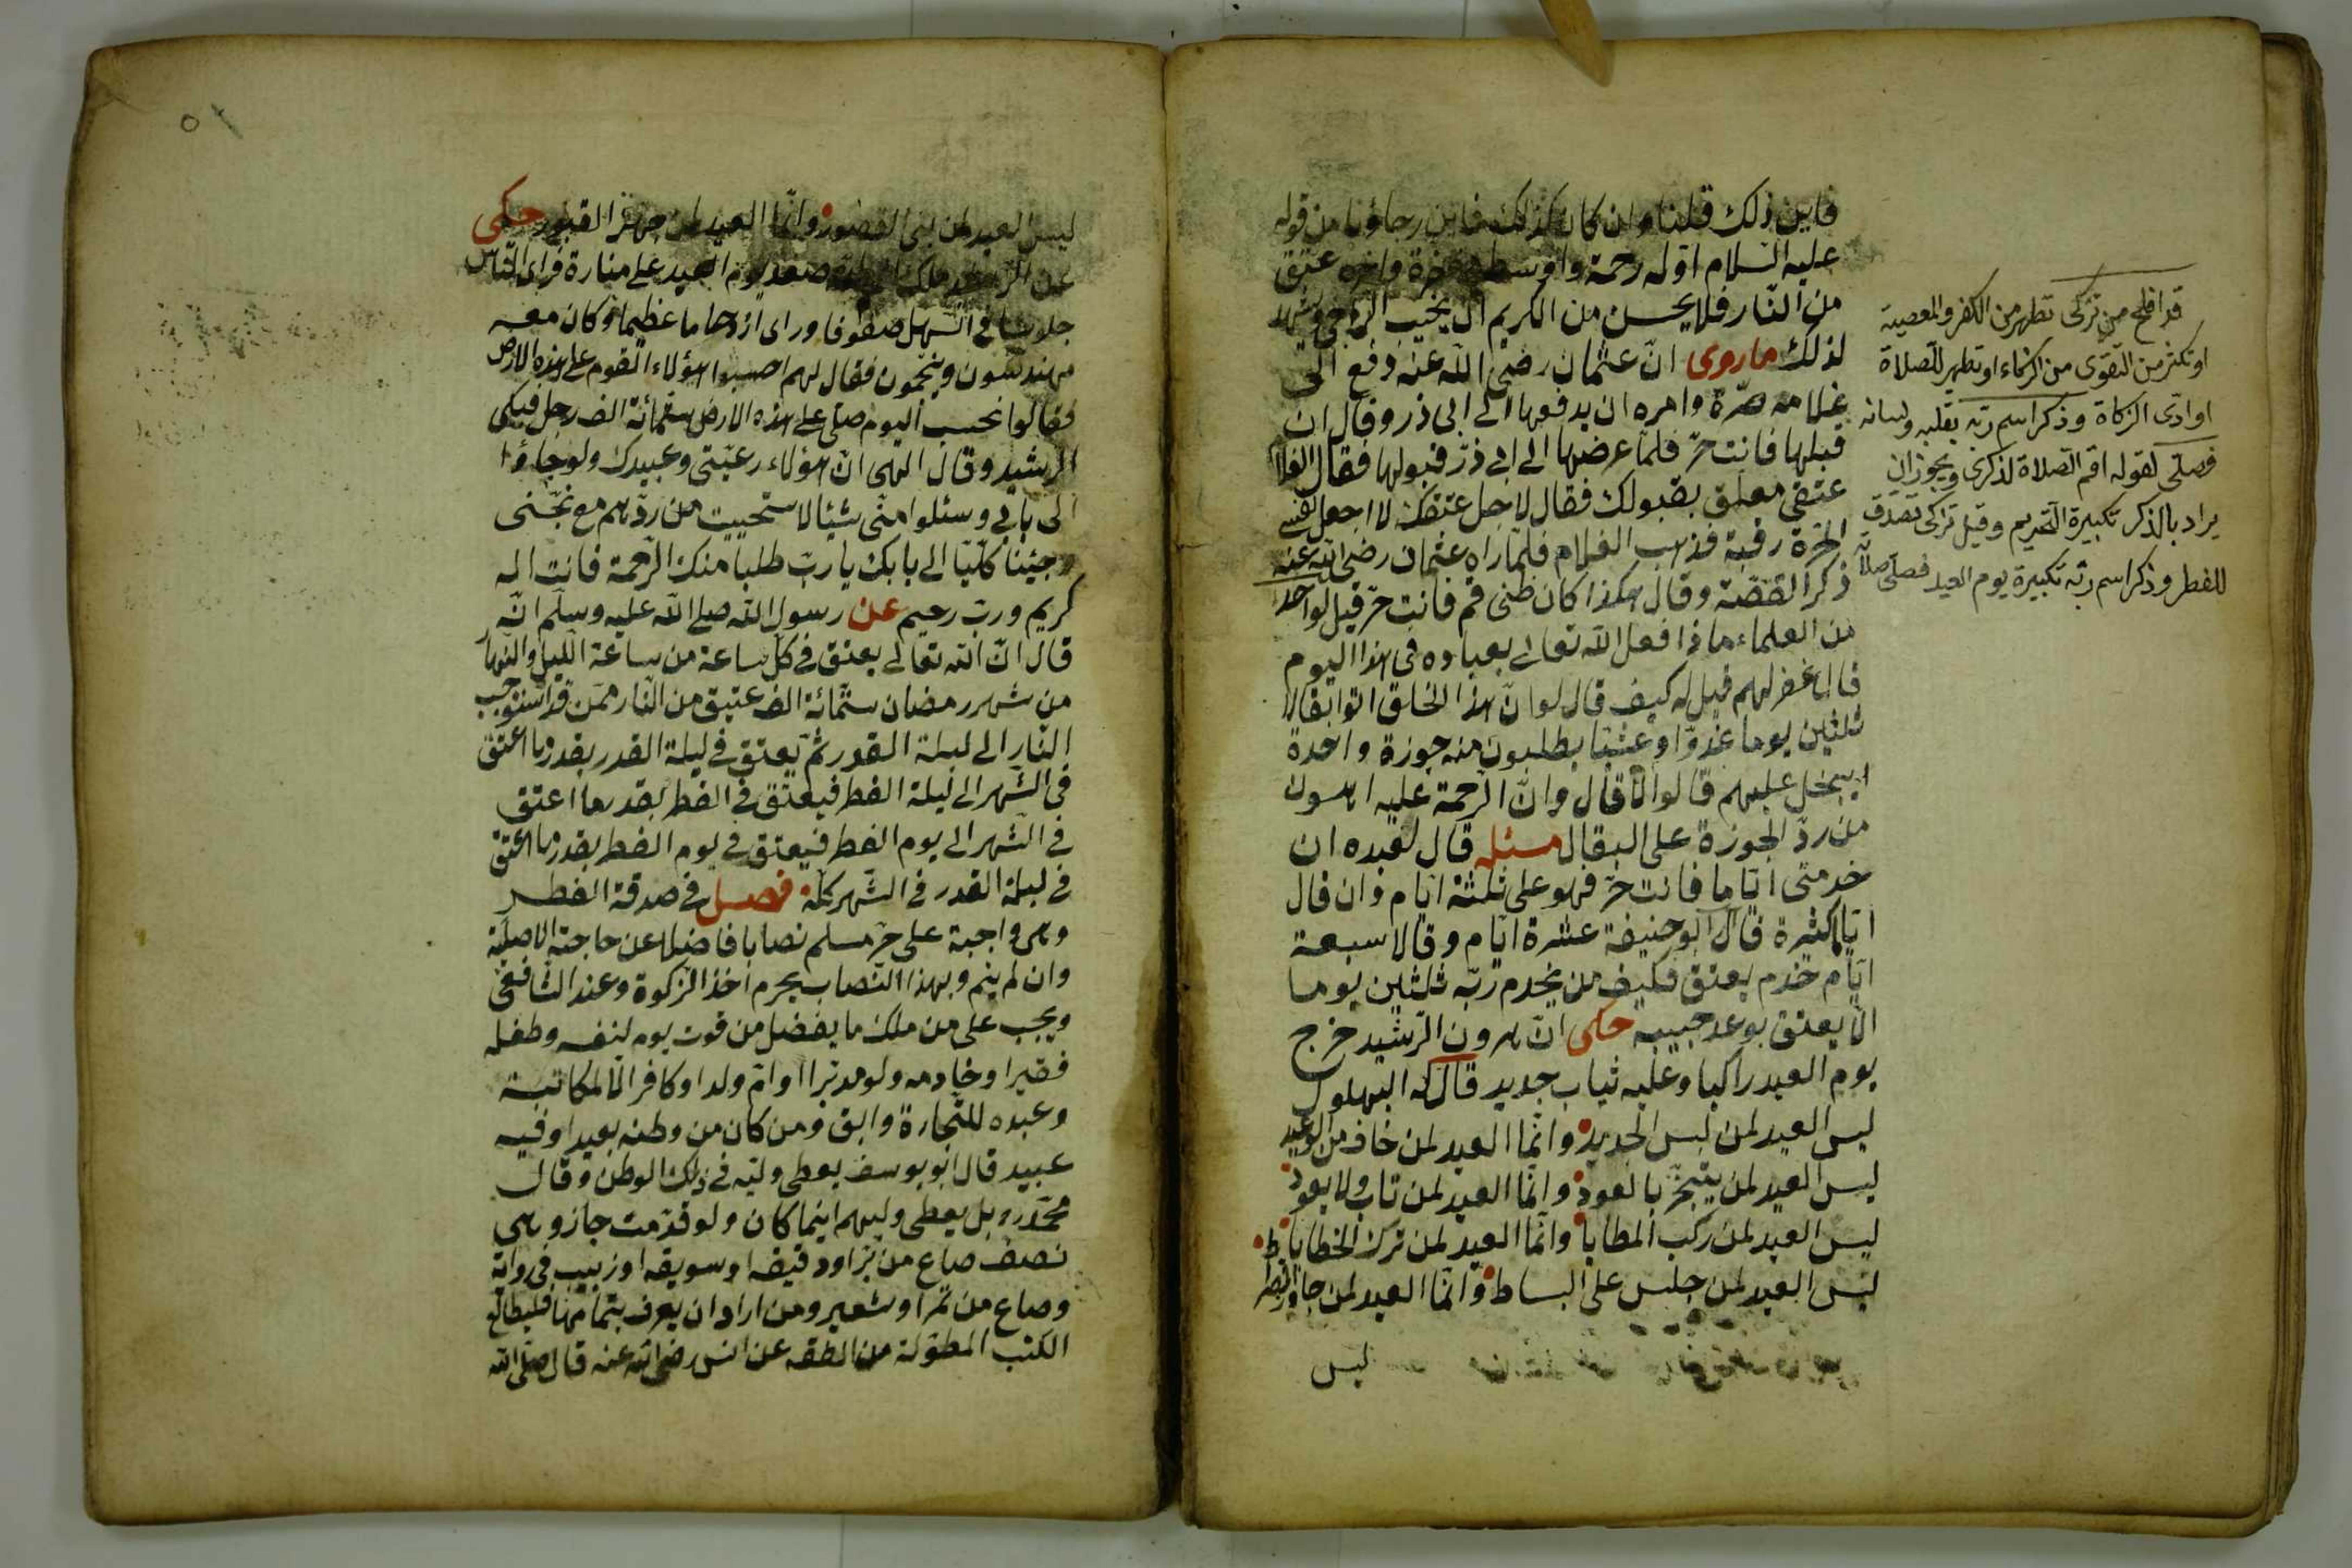 فاين ذلك قلنا وان كان كذلك فاين رجاؤنا من قوله
عليه السلام اوله رحمة واوسطه مغفرة واخره عتق
من النار فلا يحسن من الكريم ان يخيب الراجى ويشهد
لذلك ما روى انّ عثمان رضى اللّه عنه دفع الى
غلامه صرّة وامره ان يدفعها الى ابى ذر وقال ان
قبلها فانت حرّ فلمّا عرضها الى ابى ذرّ قبولها فقال الغلام
عتقى معلق بقبولك فقال لاجل عتقك لا اجعل نفسى
الحرة رقبة فذهب الغلام فلمّا راه عثمان رضى اللّه عنه
ذكر القصّة وقال هكذا كان ظنى قم فانت حرّ قيل لواحد
من العلماء ماذا فعل اللّه تعالى بعباده فى هذا اليوم
قال غفر لهم قيل له كيف قال لو انّ هذا الخلق اتوا بقالا
ثلثين يوما غدوّا وعشيّا يطلبون منه جوزة واحدة
ايبخل عليهم قالوا لا قال وانّ الرحمة عليه اهون
من ردّ الجوزة على البقال مسئله قال لعبده ان
خدمتنى ايّاما فانت حرّ فهو على ثلثة ايّام وان قال
ايّاما كثيرة قال ابو حنيفة عشرة ايّام وقالا سبعة
ايّام خدم يعتق فكيف من يخدم ربّه ثلثين يوما
الّا يعتق بوعد حبيبه حكى انّ هرون الرّشيد خرج
يوم العيد راكبا وعليه ثياب جديد قال له البهلول
ليس العيد لمن لبس الجديد وانّما العيد لمن خاف من الوعيد
ليس العيد لمن يتبخّر بالعود وانّما العيد لمن تاب ولا يعود
ليس العيد لمن ركب المطايا وانّما العيد لمن ترك الخطايا
ليس العيد لمن جلس على البساط وانّما العيد لمن جاوز الصراط
ليس
قد افلح من تزكى تطهر من الكفر والمعصية
او تكثر من التقوى من الزكاء او تطهر للصلاة
او ادّى الزكاة وذكر اسم ربّه بقلبه ولسانه
فصلّى لقوله اقم الصّلاة لذكرى ويجوز ان
يراد بالذكر تكبيرة التحريم وقيل تزكى تصدّق
للفطر وذكر اسم ربّه تكبيرة يوم العيد فصلّى صلاته
ليس العيد لمن بنى القصور وانّما العيد لمن جهز القبور حكى
صعد يوم العيد على منارة فراى النّاس
جلوسا فى السّهل صفوفا وراى ازدحاما عظيما وكان معه
مهندسون ومنجّمون فقال لهم احسبوا هؤلاء القوم على هذه الارض
فقالوا نحسب اليوم صلّى على هذه الارض ستّمائة الف رجل فبكى
الرشيد وقال الهى انّ هؤلاء رعيّتى وعبيدك ولو جاؤا
الى بابى وسئلوا منّى شيئا لاستحييت من ردّهم مع
وجئنا كلّنا الى بابك يا ربّ طلبا منك الرّحمة فانت اله
كريم وربّ رحيم عن رسول اللّه صلى اللّه عليه وسلّم انّه
قال انّ اللّه تعالى يعتق فى كلّ ساعة من ساعة اللّيل والنّهار
من شهر رمضان ستّمائة الف عتيق من النّار ممّن قد استوجب
النّار الى ليلة القدر ثمّ يعتق فى ليلة القدر بقدر ما اعتق
فى الشّهر الى ليلة الفطر فيعتق فى الفطر بقدر ما اعتق
فى الشّهر الى يوم الفطر فيعتق فى يوم الفطر بقدر ما اعتق
فى ليلة القدر فى الشّهر كلّه فصل فى صدقة الفطر
وهى واجبة على حرّ مسلم نصابا فاضلا عن حاجته الاصليّة
وان لم ينم وبهذا النّصاب يحرم اخذ الزكوة وعند الشّافعى
ويجب على من ملك ما يفضل من قوت يوم لنفسه وطفله
فقيرا وخادمه ولو مدبّرا او امّ ولد او كافر الّا لمكاتبة
وعبده للتّجارة وابق ومن كان من وطنه بعيدا وفيه
عبيد قال ابو يوسف يعطى وليّه فى ذلك الوطن وقال
محمّد ره بل يعطى وليهم اينما كان ولو قدّمت جاز وهى
نصف صاع من برّ او دقيقه او سويقه او زبيب فى رواية
وصاع من تمر او شعير ومن اراد ان يعرف بتمامها فليطالع
الكتب المطوّلة من الفقه عن انس رضى اللّه عنه قال صلّى اللّه